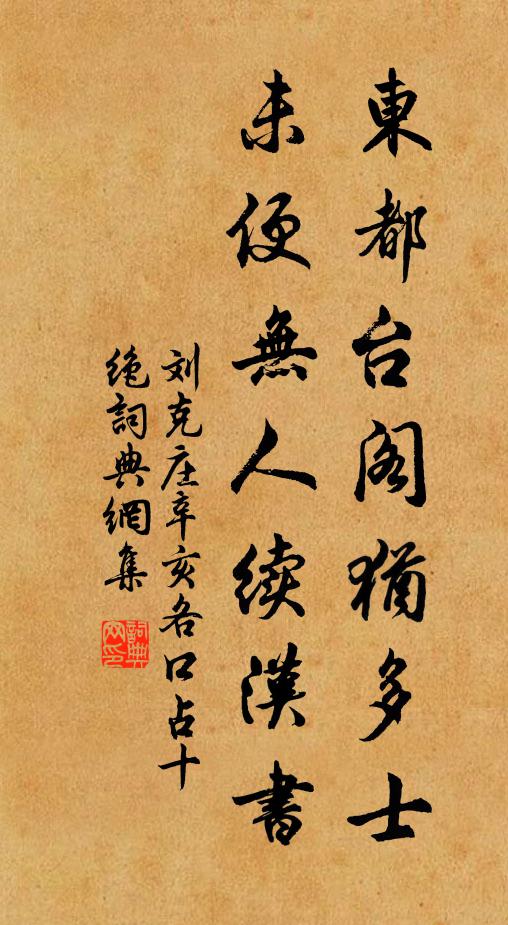 東都台阁猶多士
未便無人续漢書
刘克庄辛亥各口占十
绝詞典網集
詞典网印